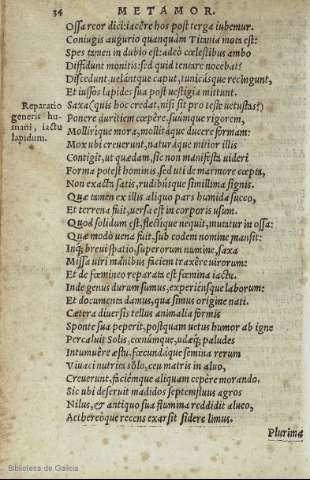 34 METAMOR.
Ossa reor dici: iacere hos post terga iubemur.
Coniugis augurio quanquam Titania mota est:
Spes tamen in dubio est: adeò cœlestibus ambo
Diffidunt monitis: sed quid tentare nocebat?
Discedunt, uelántque caput, tunicásque recingunt,
Et iussos lapides sua post uestigia mittunt.
Reparatio generis humani, iactu lapidum.
Saxa (quis hoc credat, nisi sit pro teste uetustas?)
Ponere duritiem cœpêre, suúmque rigorem,
Mollirique mora, mollitáque ducere formam:
Mox ubi creuerunt, naturáque mitior illis
Contigit, ut quædam, sic non manifesta uideri
Forma potest hominis, sed uti de marmore cœpta,
Non exacta satis, rudibúsque simillima signis.
Quæ tamen ex illis aliquo pars humida succo,
Et terrena fuit, uersa est in corporis usum.
Quod solidum est, flectíque nequit, mutatur in ossa:
Quæ modò uena fuit, sub eodem nomine mansit:
Inq; breui spatio, superorum numine, saxa
Missa uiri manibus faciem traxêre uirorum:
Et de fœmineo reparata est fœmina iactu.
Inde genus durum sumus, experiénsque laborum:
Et documenta damus, qua simus origine nati.
Cætera diuersis tellus animalia formis
Sponte sua peperit, postquam uetus humor ab igne
Percaluit Solis, cœnúmque, udæq; paludes
Intumuêre æstu, fœcundáque semina rerum
Viuaci nutrita solo, ceu matris in aluo,
Creuerunt, faciémque aliquam cepêre morando.
Sic ubi deseruit madidos septemfluus agros
Nilus, & antiquo sua flumina reddidit alueo,
Aethereóque recens exarsit sidere limus.
Plurima
Biblioteca de Galicia